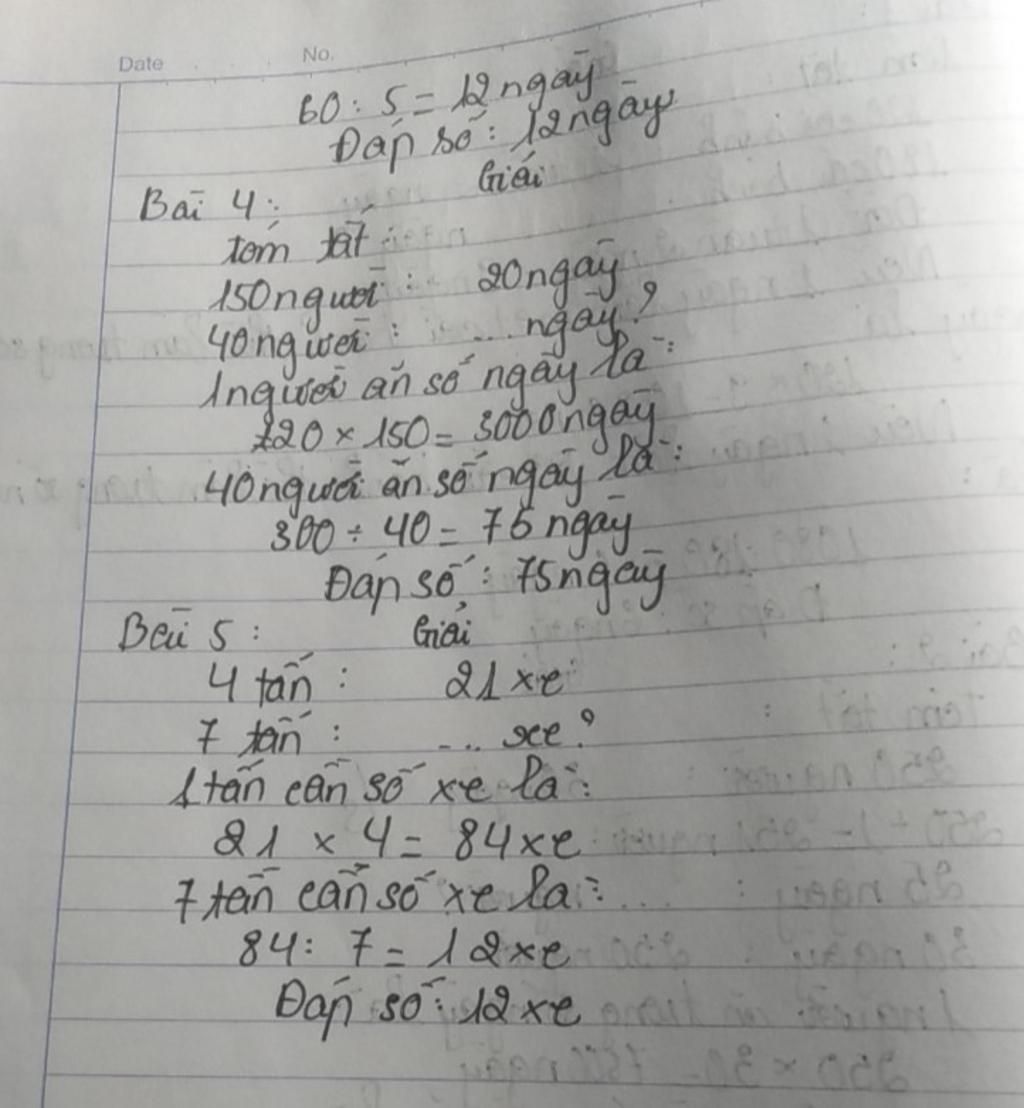 Date No.
60 : 5 = 12 ngày
Đáp số : 12 ngày
Giải
Bài 4 :
tóm tắt
150 người : 20 ngày
40 người : ... ngày?
1 người ăn số ngày là :
20 × 150 = 3000 ngày
40 người ăn số ngày là :
300 ÷ 40 = 75 ngày
Đáp số : 75 ngày
Bài 5 : Giải
4 tấn : 21 xe
7 tấn : ... xe?
1 tấn cần số xe là :
21 × 4 = 84 xe
7 tấn cần số xe là :
84 : 7 = 12 xe
Đáp số : 12 xe